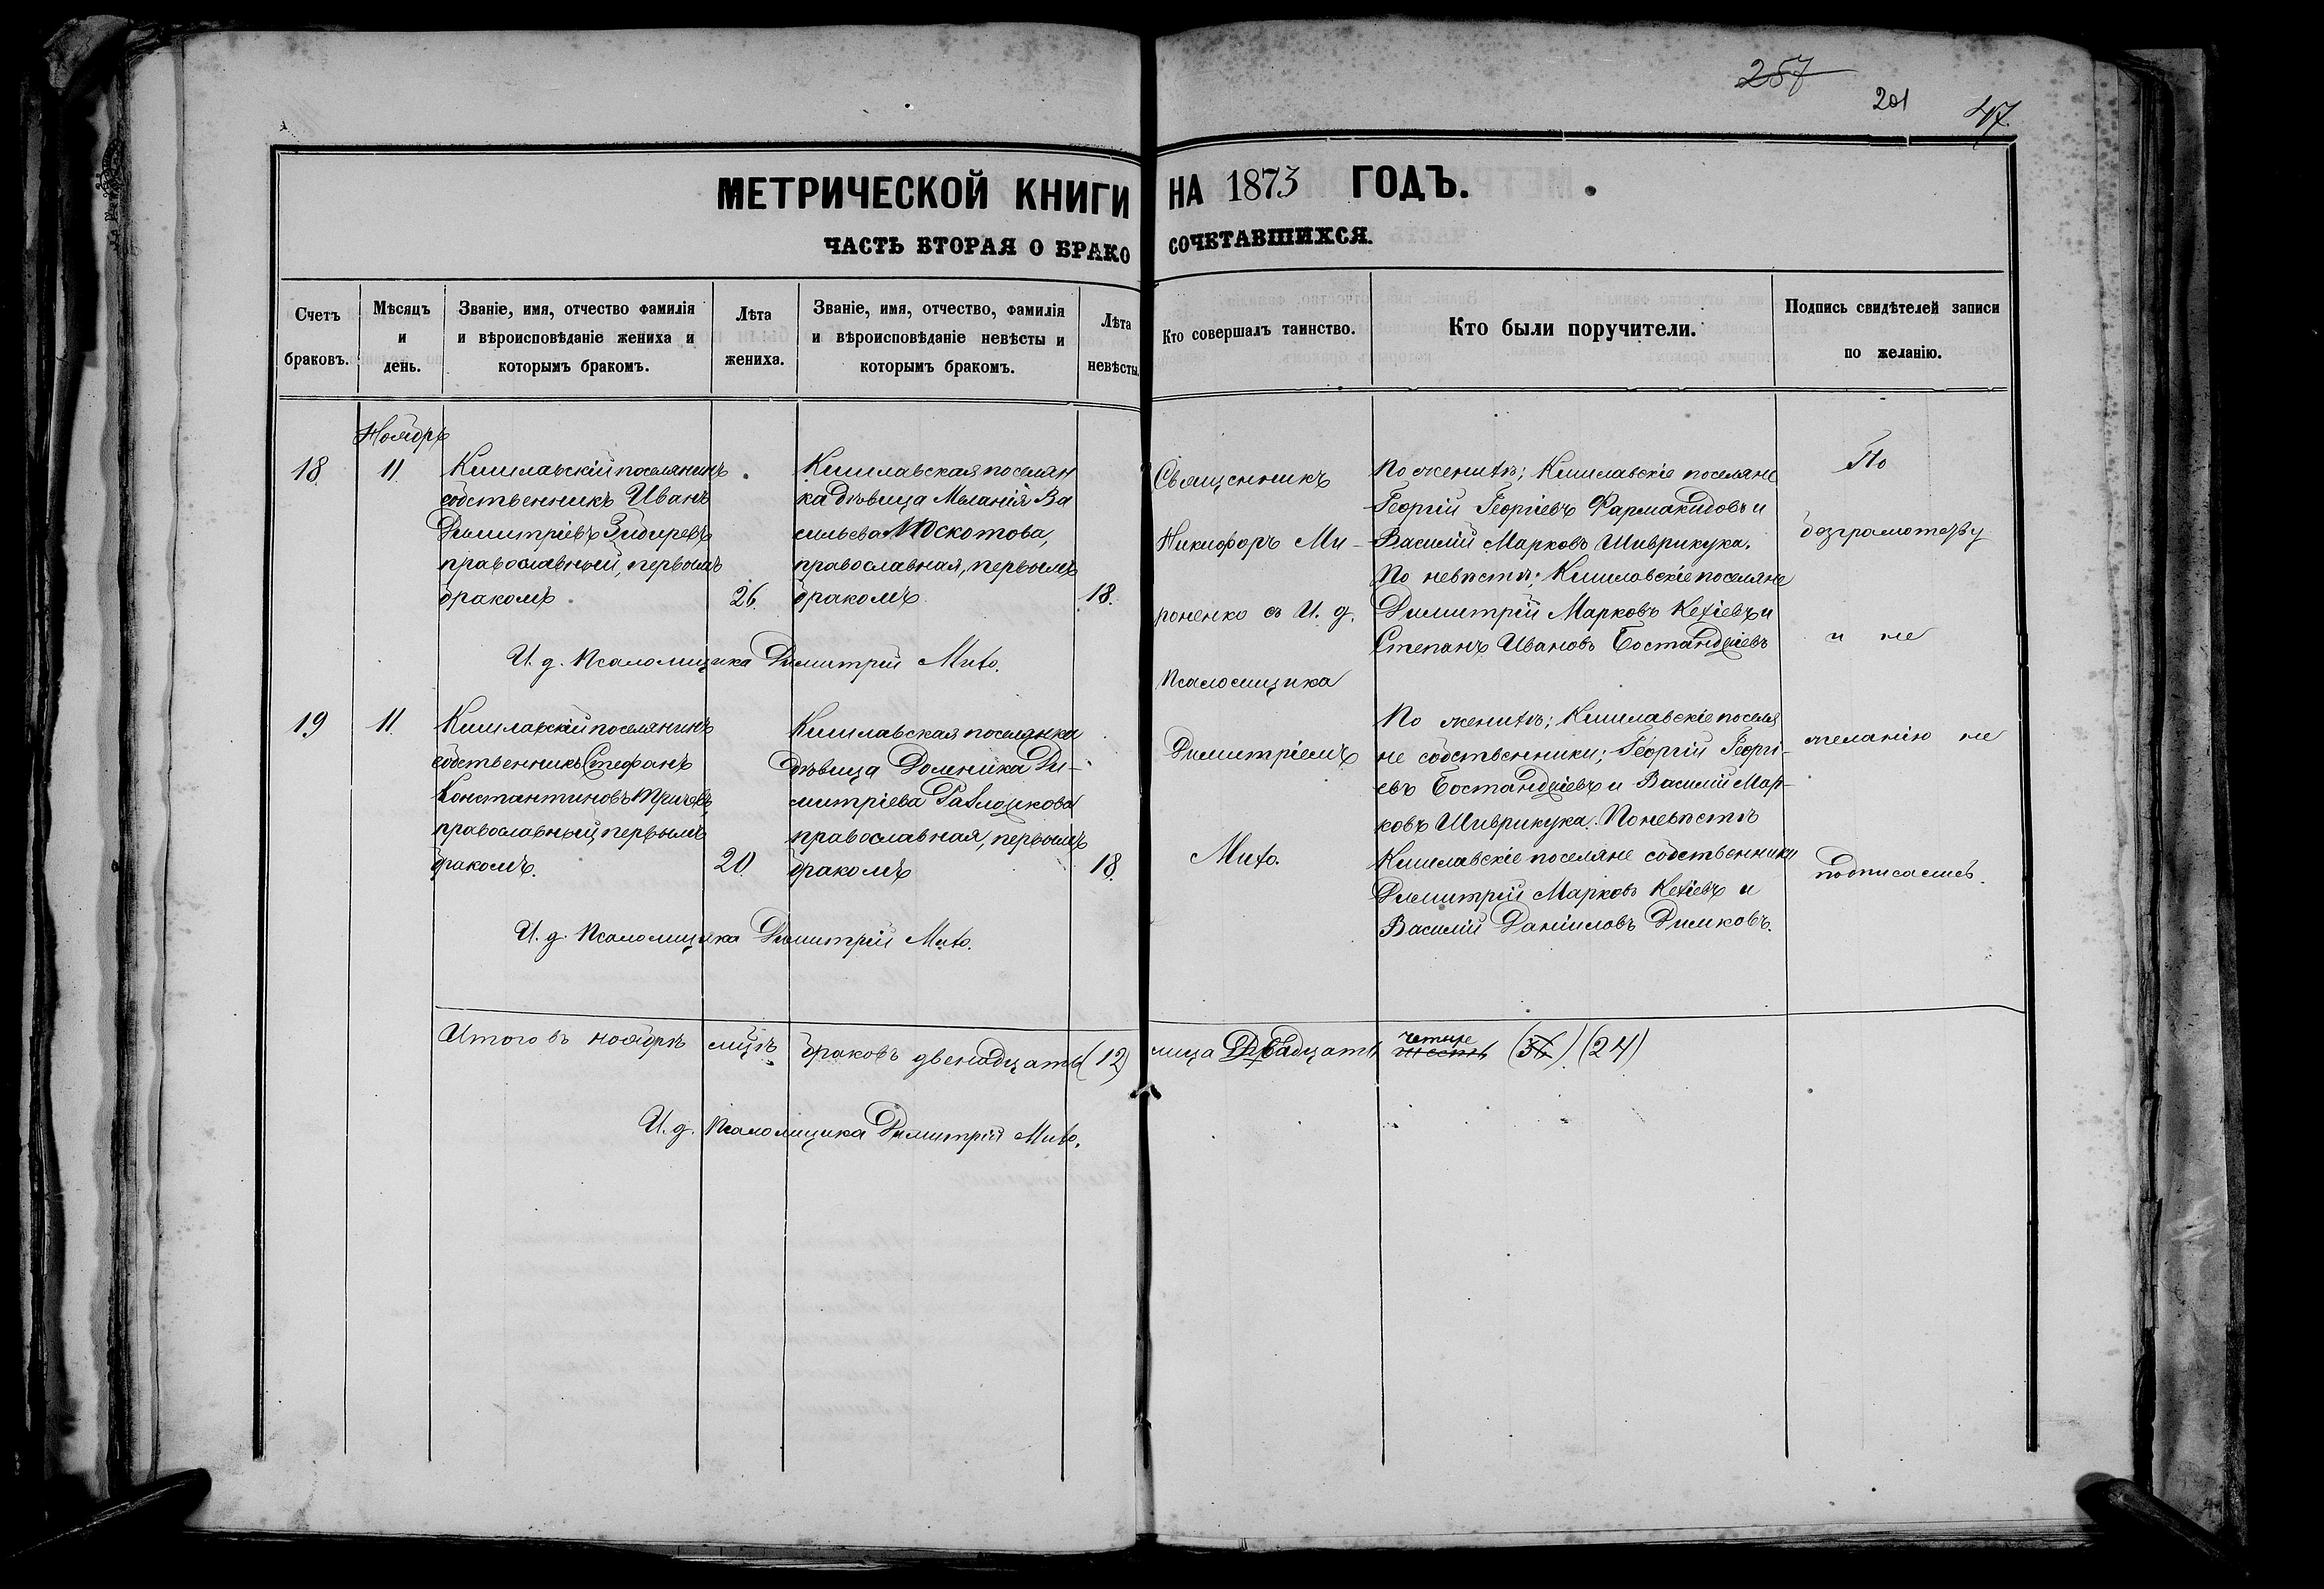 257
201
47.
МЕТРИЧЕСКОЙ КНИГИ НА 1873 ГОДЪ.
ЧАСТЬ ВТОРАЯ О БРАКОСОЧЕТАВШИХСЯ.
Счетъ
браковъ.
Мѣсяцъ
и
день.
Званіе, имя, отчество фамилія
и вѣроисповѣданіе жениха и
которымъ бракомъ.
Лѣта
жениха.
Званіе, имя, отчество, фамилія
и вѣроисповѣданіе невѣсты и
которымъ бракомъ.
Лѣта
невѣсты.
Кто совершалъ таинство.
Кто были поручители.
Подпись свидѣтелей записи
по желанію.
Ноябрь
18
11
Кишлавскій поселянинъ
собственникъ Иванъ
Димитріевъ
православный, первымъ
бракомъ.
26.
Кишлавская поселян
ка дѣвица Меланія Ва
сильева
православная, первымъ
бракомъ
18.
И. д. Псаломщика Димитрій Мито.
19
11
Кишлавскій поселянинъ
собственникъ Стефанъ
Константиновъ
православный первымъ
бракомъ.
20
Кишлавская поселянка
дѣвица Доменика Ди-
митріева
православная, первымъ
бракомъ
18.
И. д. Псаломщика Димитрій Мито.
Священникъ
Никифоръ Ми-
роненко съ И. д.
Псаломщика
Димитріемъ
Мито.
По женихѣ; Кишлавскіе поселяне
Георгій Георгіевъ Фармакидовъ и
Василій Марковъ Шиврикука.
По невѣстѣ; Кишлавскіе поселяне
Димитрій Марковъ Кехіевъ и
Степанъ Ивановъ Бостанджіевъ
По женихѣ; Кишлавскіе поселя
не собственники; Георгій Георгі-
евъ Бостанджіевъ и Василій Мар-
ковъ Шиврикука. По невѣстѣ
Кишлавскіе поселяне собственники
Димитрій Марковъ Кехіевъ и
Василій Даніиловъ Димковъ.
По
безграмотству
и не
желанію не
подписались.
Итого въ ноябрѣ мцѣ браковъ двенадцать (12) лица Двадцать четыре шесть (24)
И. д. Псаломщика Димитрій Мито.